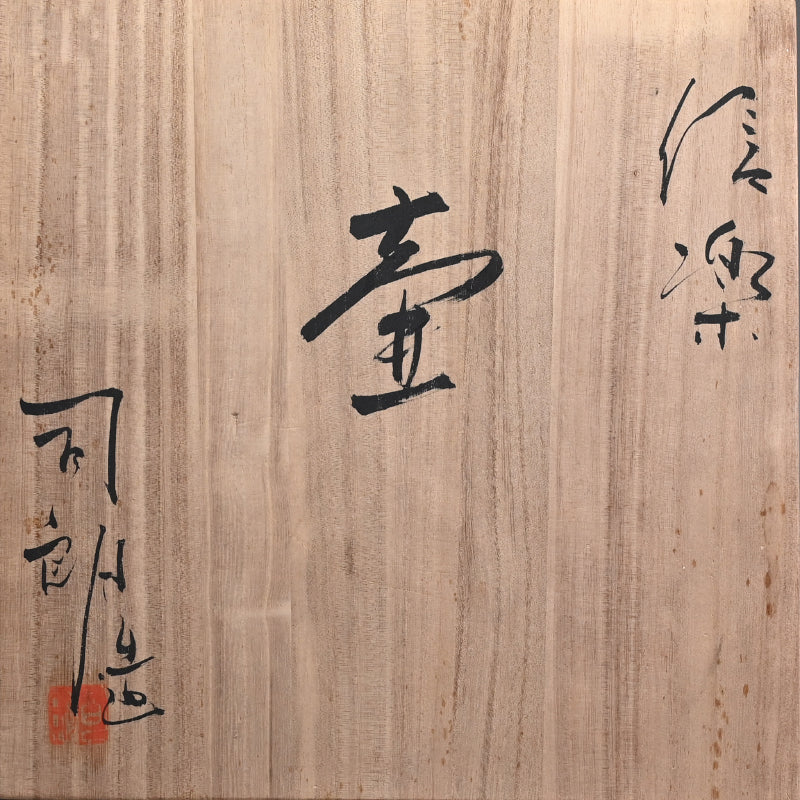 信楽
壷
司朗造